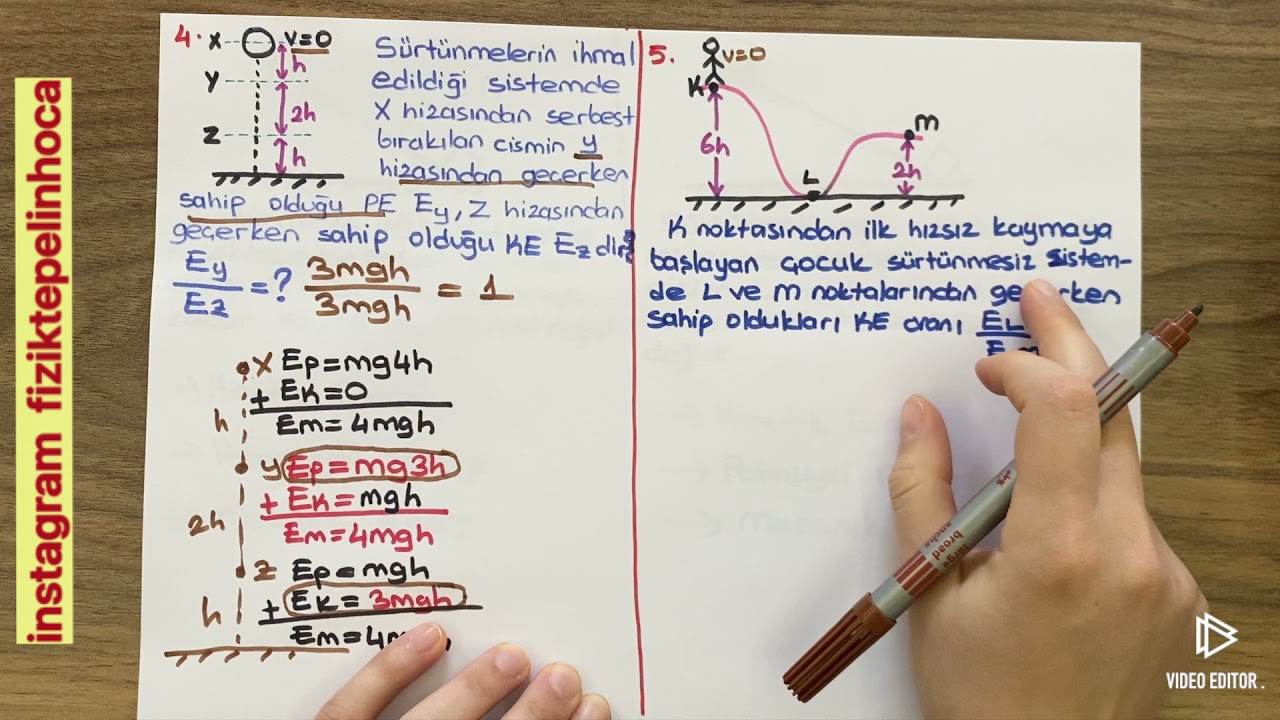 instagram fiziktepelinhoca
4.
X
V=0
h
Y
2h
Z
h
Sürtünmelerin ihmal
edildiği sistemde
X hizasından serbest
bırakılan cismin y
hizasından geçerken
sahip olduğu PE Ey, Z hizasından
geçerken sahip olduğu KE Ez dir.
Ey/Ez = ? 3mgh/3mgh = 1
X Ep=mg4h
+ EK=0
h
Em=4mgh
y Ep=mg3h
+ EK=mgh
2h
Em=4mgh
Z Ep=mgh
h
+ EK=3mgh
Em=4m
5.
V=0
K
6h
L
M
2h
K noktasından ilk hızsız kaymaya
başlayan çocuk sürtünmesiz sistem-
de L ve M noktalarından geçerken
sahip oldukları KE oranı EL
alex
broad
large
VIDEO EDITOR .